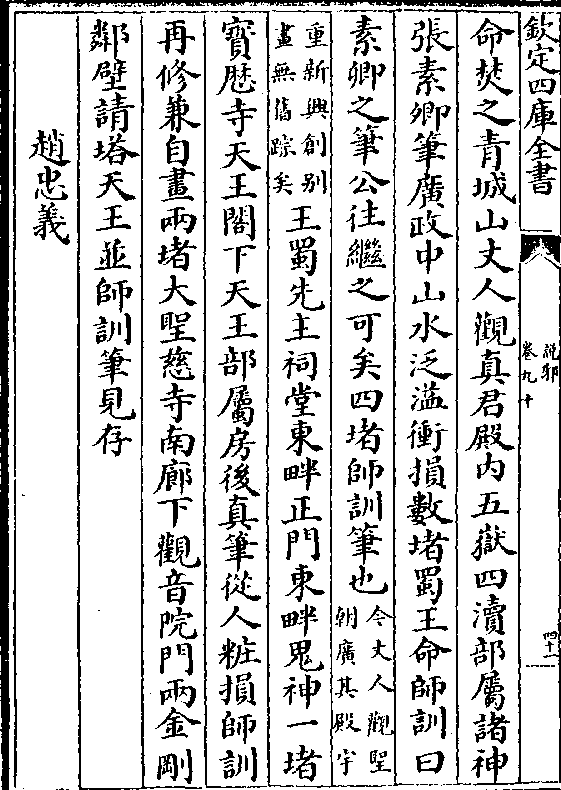 欽定四庫全書
説郛
卷九十
四十一
命焚之青城山丈人觀真君殿内五嶽四瀆部屬諸神
張素卿筆廣政中山水泛溢衝損數堵蜀王命師訓曰
素卿之筆公往繼之可矣四堵師訓筆也
今丈人觀聖
朝廣其殿宇
重新興創别
畫無舊踪矣
王蜀先主祠堂東畔正門東畔鬼神一堵
寳厯寺天王閣下天王部屬房後真筆從人粧損師訓
再修兼自畫兩堵大聖慈寺南廊下觀音院門兩金剛
鄰壁請塔天王並師訓筆見存
趙忠義